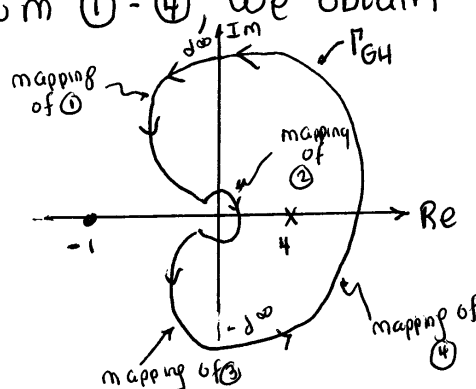 om ① - ④, we obtain
j∞ Im
ΓGH
mapping
of ①
mapping
of
②
Re
-1
4
-j∞
mapping of
④
mapping of ③